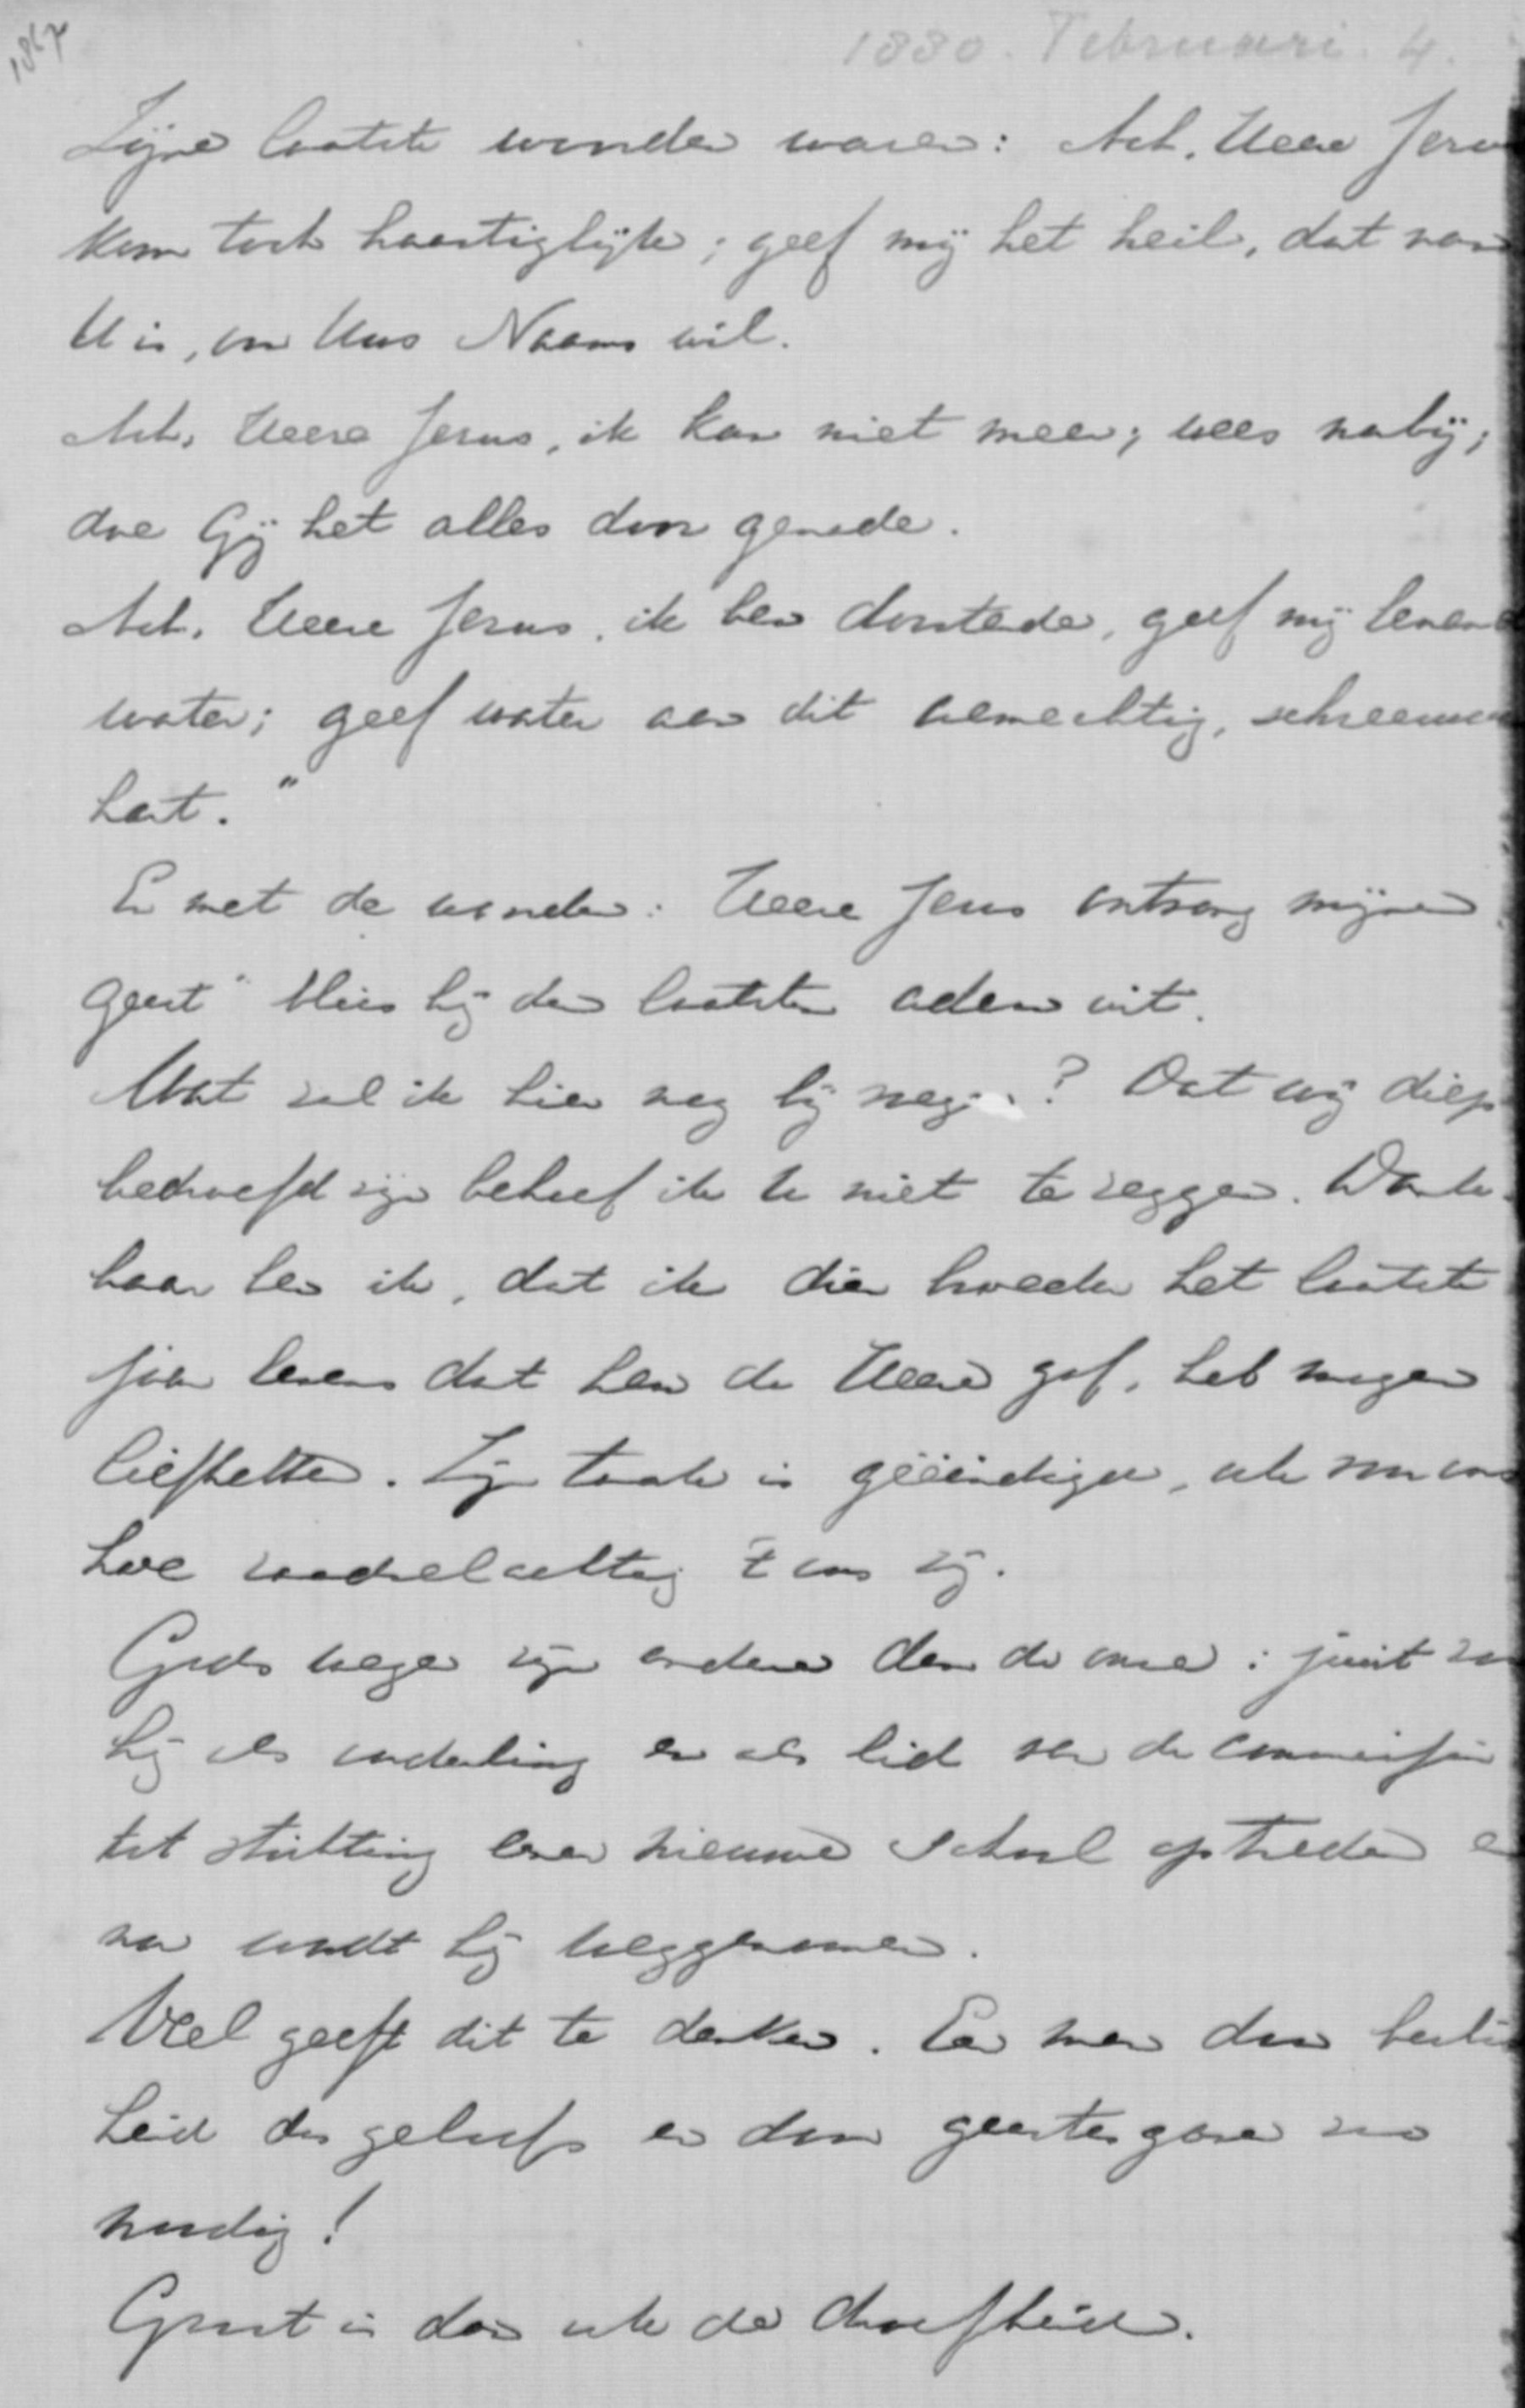 1867
1880. Februari. 4.
Zijne laatste woorden waren: Ach, Heere Jezus
kom toch haastiglijk; geef mij het heil, dat van
U is, om Uws Naams wil.
Ach, Heere Jezus, ik kan niet meer; wees nabij;
doe Gij het alles door genade.
Ach, Heere Jezus, ik ben dorstende, geef mij levend
water; geef water aan dit aemechtig, schreeuwend
hart."
En met de woorden: Heere Jezus ontvang mijnen
geest" blies hij den laatsten adem uit.
Wat zal ik hier nog bij voegen? Dat wij diep
bedroefd zijn behoef ik U niet te zeggen. Dank-
baar ben ik, dat ik dien broeder het laatste
jaar levens dat hem de Heere gaf, heb mogen
liefhebben. Zijn taak is geëindigd, ook voor ons
hoe raadselachtig 't ons zij.
Gods wegen zijn andere dan de onze: juist zou
hij als ouderling en als lid van de commissie
tot stichting eener nieuwe school optreden en
nu wordt hij weggenomen.
Veel geeft dit te denken. En men door
heid des geloofs en door geestesgave zoo
noodig!
Groot is dan ook de droefheid.